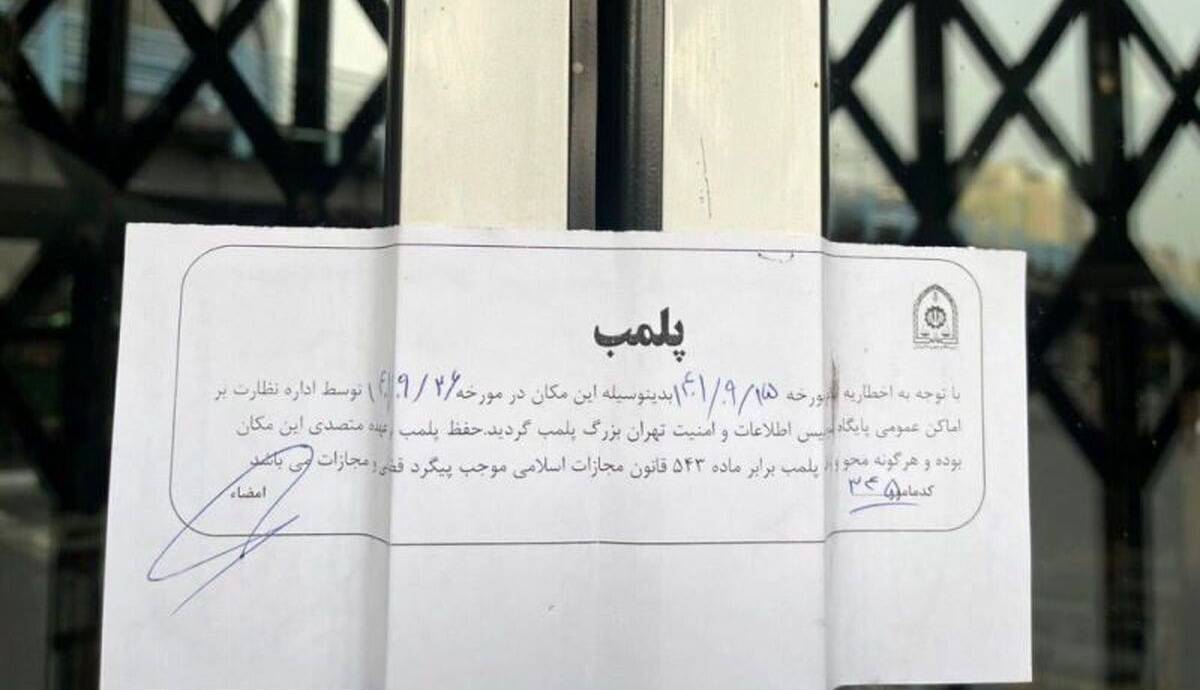 پلمب
با توجه به اخطاریه مورخه ۱۴۰۱/۰۹/۱۵ بدینوسیله این مکان در مورخه ۱۴۰۱/۰۹/۲۶ توسط اداره نظارت بر
اماکن عمومی پایگاه پلیس اطلاعات و امنیت تهران بزرگ پلمب گردید.حفظ پلمب بعهده متصدی این مکان
بوده و هرگونه محو و پلمب برابر ماده ۵۴۳ قانون مجازات اسلامی موجب پیگرد و مجازات می باشد
کدمامور ۳۴۵
امضاء